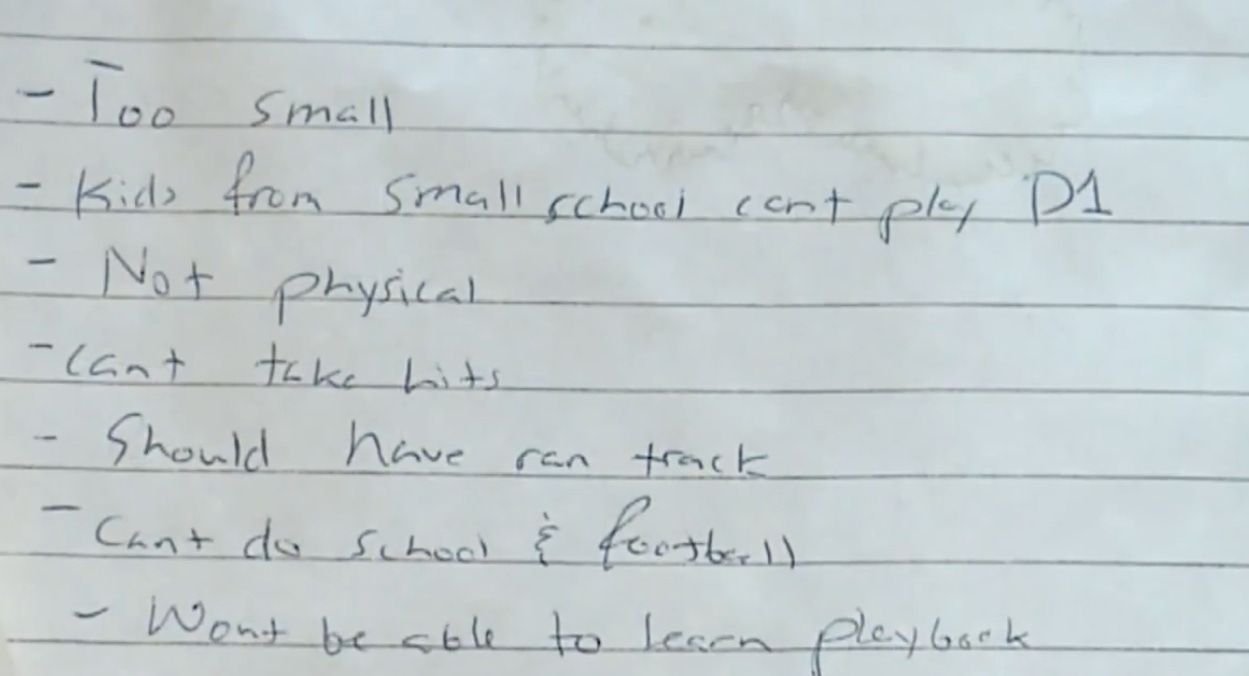 - Too small
- Kids from small school cant play D1
- Not physical
- Cant take hits
- Should have ran track
- Cant do school & football
- Wont be able to learn playbook